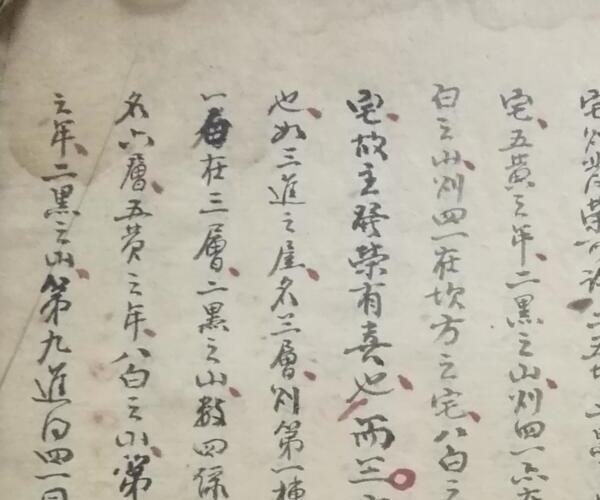 宅則發榮
宅五黃之年二黑之山則四一六
白之山則四一在坎方之宅八白之
宅故主發榮有真也而三
也如三進之屋名三層則第一棟
一在三層二黑之山數四綠
名六層五黃之年八白之山第
之年二黑之山第九進曰四一同